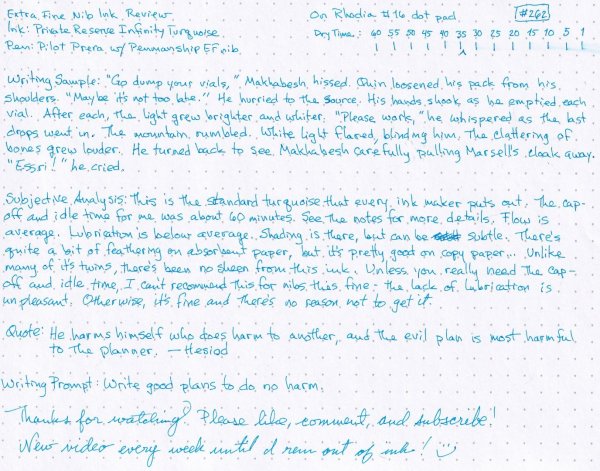 Extra Fine Nib Ink Review
On Rhodia #16 dot pad
#262
Ink: Private Reserve Infinity Turquoise
Dry Time: 60 55 50 45 40 35 30 25 20 15 10 5 1
Pen: Pilot Prera w/ Penmanship EF nib
Writing Sample: "Go dump your vials," Makhabesh hissed. Quin loosened his pack from his
shoulders. "Maybe it's not too late." He hurried to the source. His hands shook as he emptied each
vial. After each, the light grew brighter and whiter. "Please work," he whispered as the last
drops went in. The mountain rumbled. White light flared, blinding him. The clattering of
bones grew louder. He turned back to see Makhabesh carefully pulling Marsell's cloak away.
"Essri!" he cried.
Subjective Analysis: This is the standard turquoise that every ink maker puts out. The cap-
off and idle time for me was about 60 minutes. See the notes for more details. Flow is
average. Lubrication is below average. Shading is there, but can be subtle. There's
quite a bit of feathering on absorbent paper, but it's pretty good on copy paper... Unlike
many of it's twins, there's been no sheen from this ink. Unless you really need the cap-
off and idle time, I can't recommend this for nibs this fine - the lack of lubrication is
unpleasant. Otherwise, it's fine and there's no reason not to get it.
Quote: He harms himself who does harm to another, and the evil plan is most harmful
to the planner. — Hesiod
Writing Prompt: Write good plans to do no harm.
Thanks for watching! Please like, comment, and subscribe!
New video every week until I run out of ink!